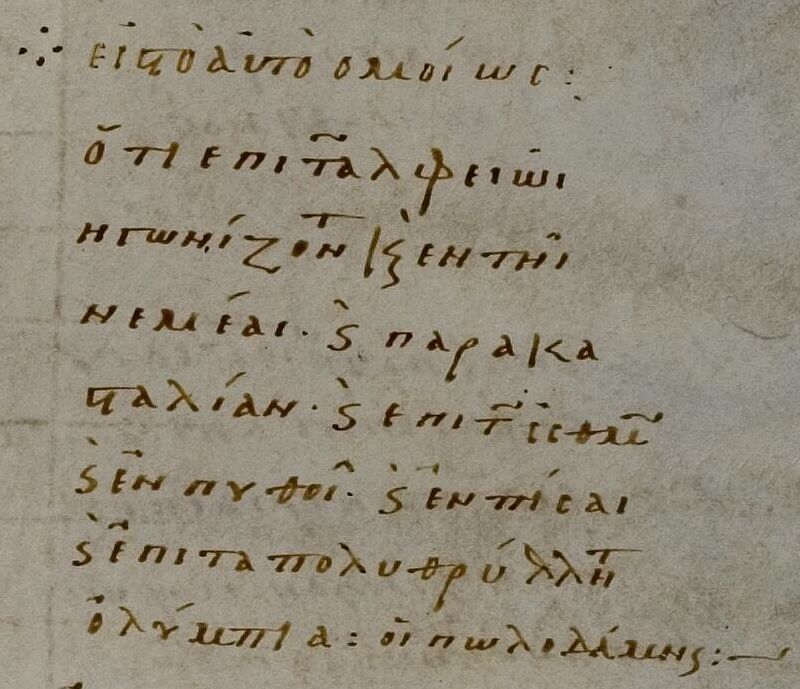 ∴ εἰς τὸ ἀυτὸ ὁμοίως :
ὅτι ἐπι τ̃ ἀλφειῶι
ἠγωνίζοντ κ̀ ἐν τῆι
νεμέαι· κ̀ παρα κα
σταλίαν· κ̀ ἐπι τ̃ ἰσθμ̃
κ̀ ἐν πυθοῖ· κ̀ ἐν πίσαι
κ̀ ἐπι τα πολυθρύλλητ
ὀλύμπια : οἱ πωλοδάμνης :—